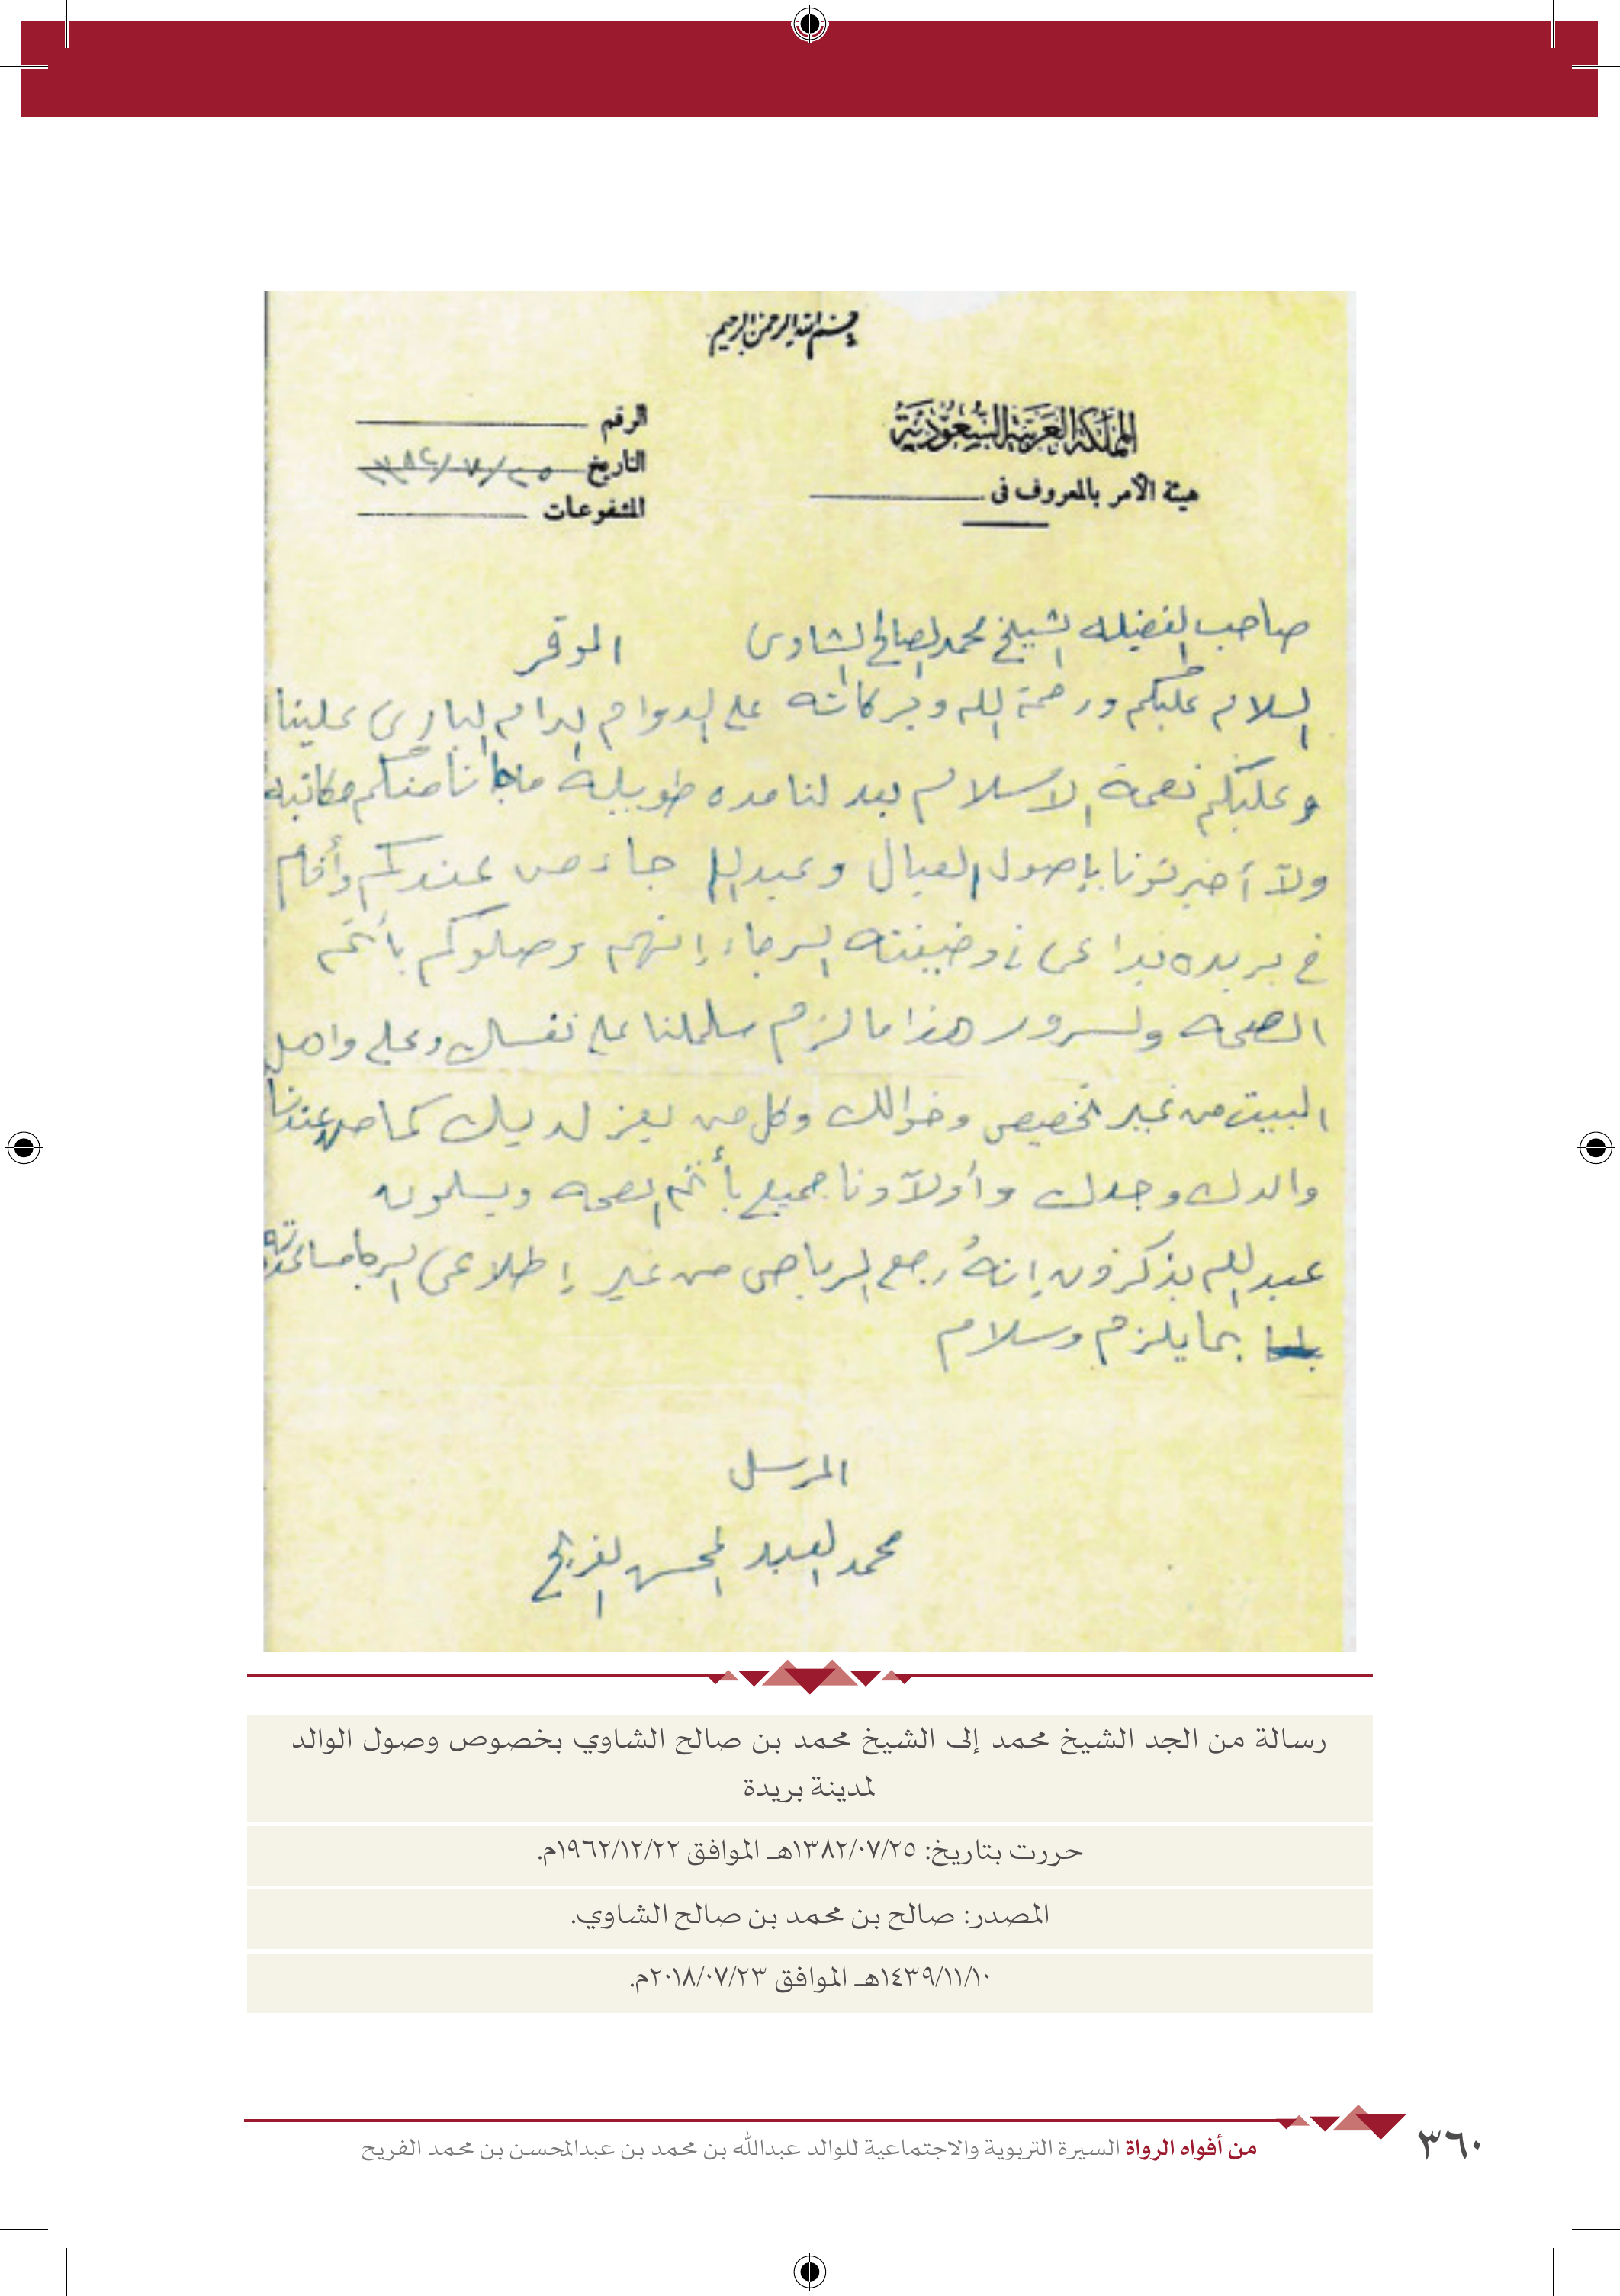 بسم الله الرحمن الرحيم
المملكة العربية السعودية
هيئة الأمر بالمعروف في
الرقم
التاريخ ٢٥/٧/١٣٨٢
المشفوعات
صاحب الفضيله الشيخ محمد الصالح الشاوى الموقر
السلام عليكم ورحمة الله وبركاته على الدوام ادام البارى علينا
وعليكم نعمة الاسلام بعد لنا مده طويلة ماجانا منكم مكاتبه
ولآ أخبرتونا بإصول العيال وعبد الله جاء من عندكم وأقام
في بريده في وضيفته الرجاء إنهم وصلوكم بأتم
الصحه ولسرور هذا ما لزم سلملنا على نفسك وعلى واهل
البيت من غير تخصيص وخوالك وكل من يعز لديك كما من عندنا
والدك وجدك وأولآدنا جميع بأتم الصحه ويسلمون
عبد الله يذكرون إنهُ رجع الرياض من غير إطلاعى
بما يلزم وسلام
المرسل
محمد العبد المحسن الفريح
رسالة من الجد الشيخ محمد إلى الشيخ محمد بن صالح الشاوي بخصوص وصول الوالد
لمدينة بريدة
حررت بتاريخ: ١٣٨٢/٠٧/٢٥هـ الموافق ١٩٦٢/١٢/٢٢م.
المصدر: صالح بن محمد بن صالح الشاوي.
١٤٣٩/١١/١٠هـ الموافق ٢٠١٨/٠٧/٢٣م.
من أفواه الرواة السيرة التربوية والاجتماعية للوالد عبدالله بن محمد بن عبدالمحسن بن محمد الفريح
٣٦٠